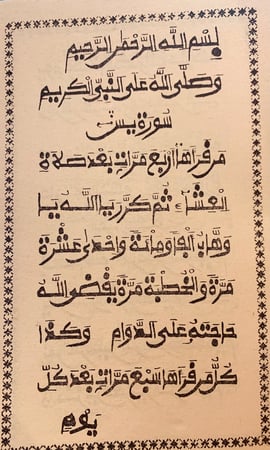 بِسْمِ اللَّهِ الرَّحْمَٰنِ الرَّحِيمِ
وَصَلَّى اللَّهُ عَلَى النَّبِيِّ الْكَرِيمِ
سُورَةُ يس
مَن قَرَأَهَا أَرْبَعَ مَرَّاتٍ بَعْدَ صَلَاةِ
الْعِشَاءِ ثُمَّ كَرَّرَ يَا اللَّهُ يَا
وَهَّابُ أَلْفًا وَمِائَةً وَإِحْدَى عَشْرَةَ
مَرَّةً وَالْخُطْبَةَ مَرَّةً يَقْضِي اللَّهُ
حَاجَتَهُ عَلَى الدَّوَامِ وَكَذَا
كُلُّ مَن قَرَأَهَا سَبْعَ مَرَّاتٍ بَعْدَ كُلِّ
يَوْمٍ